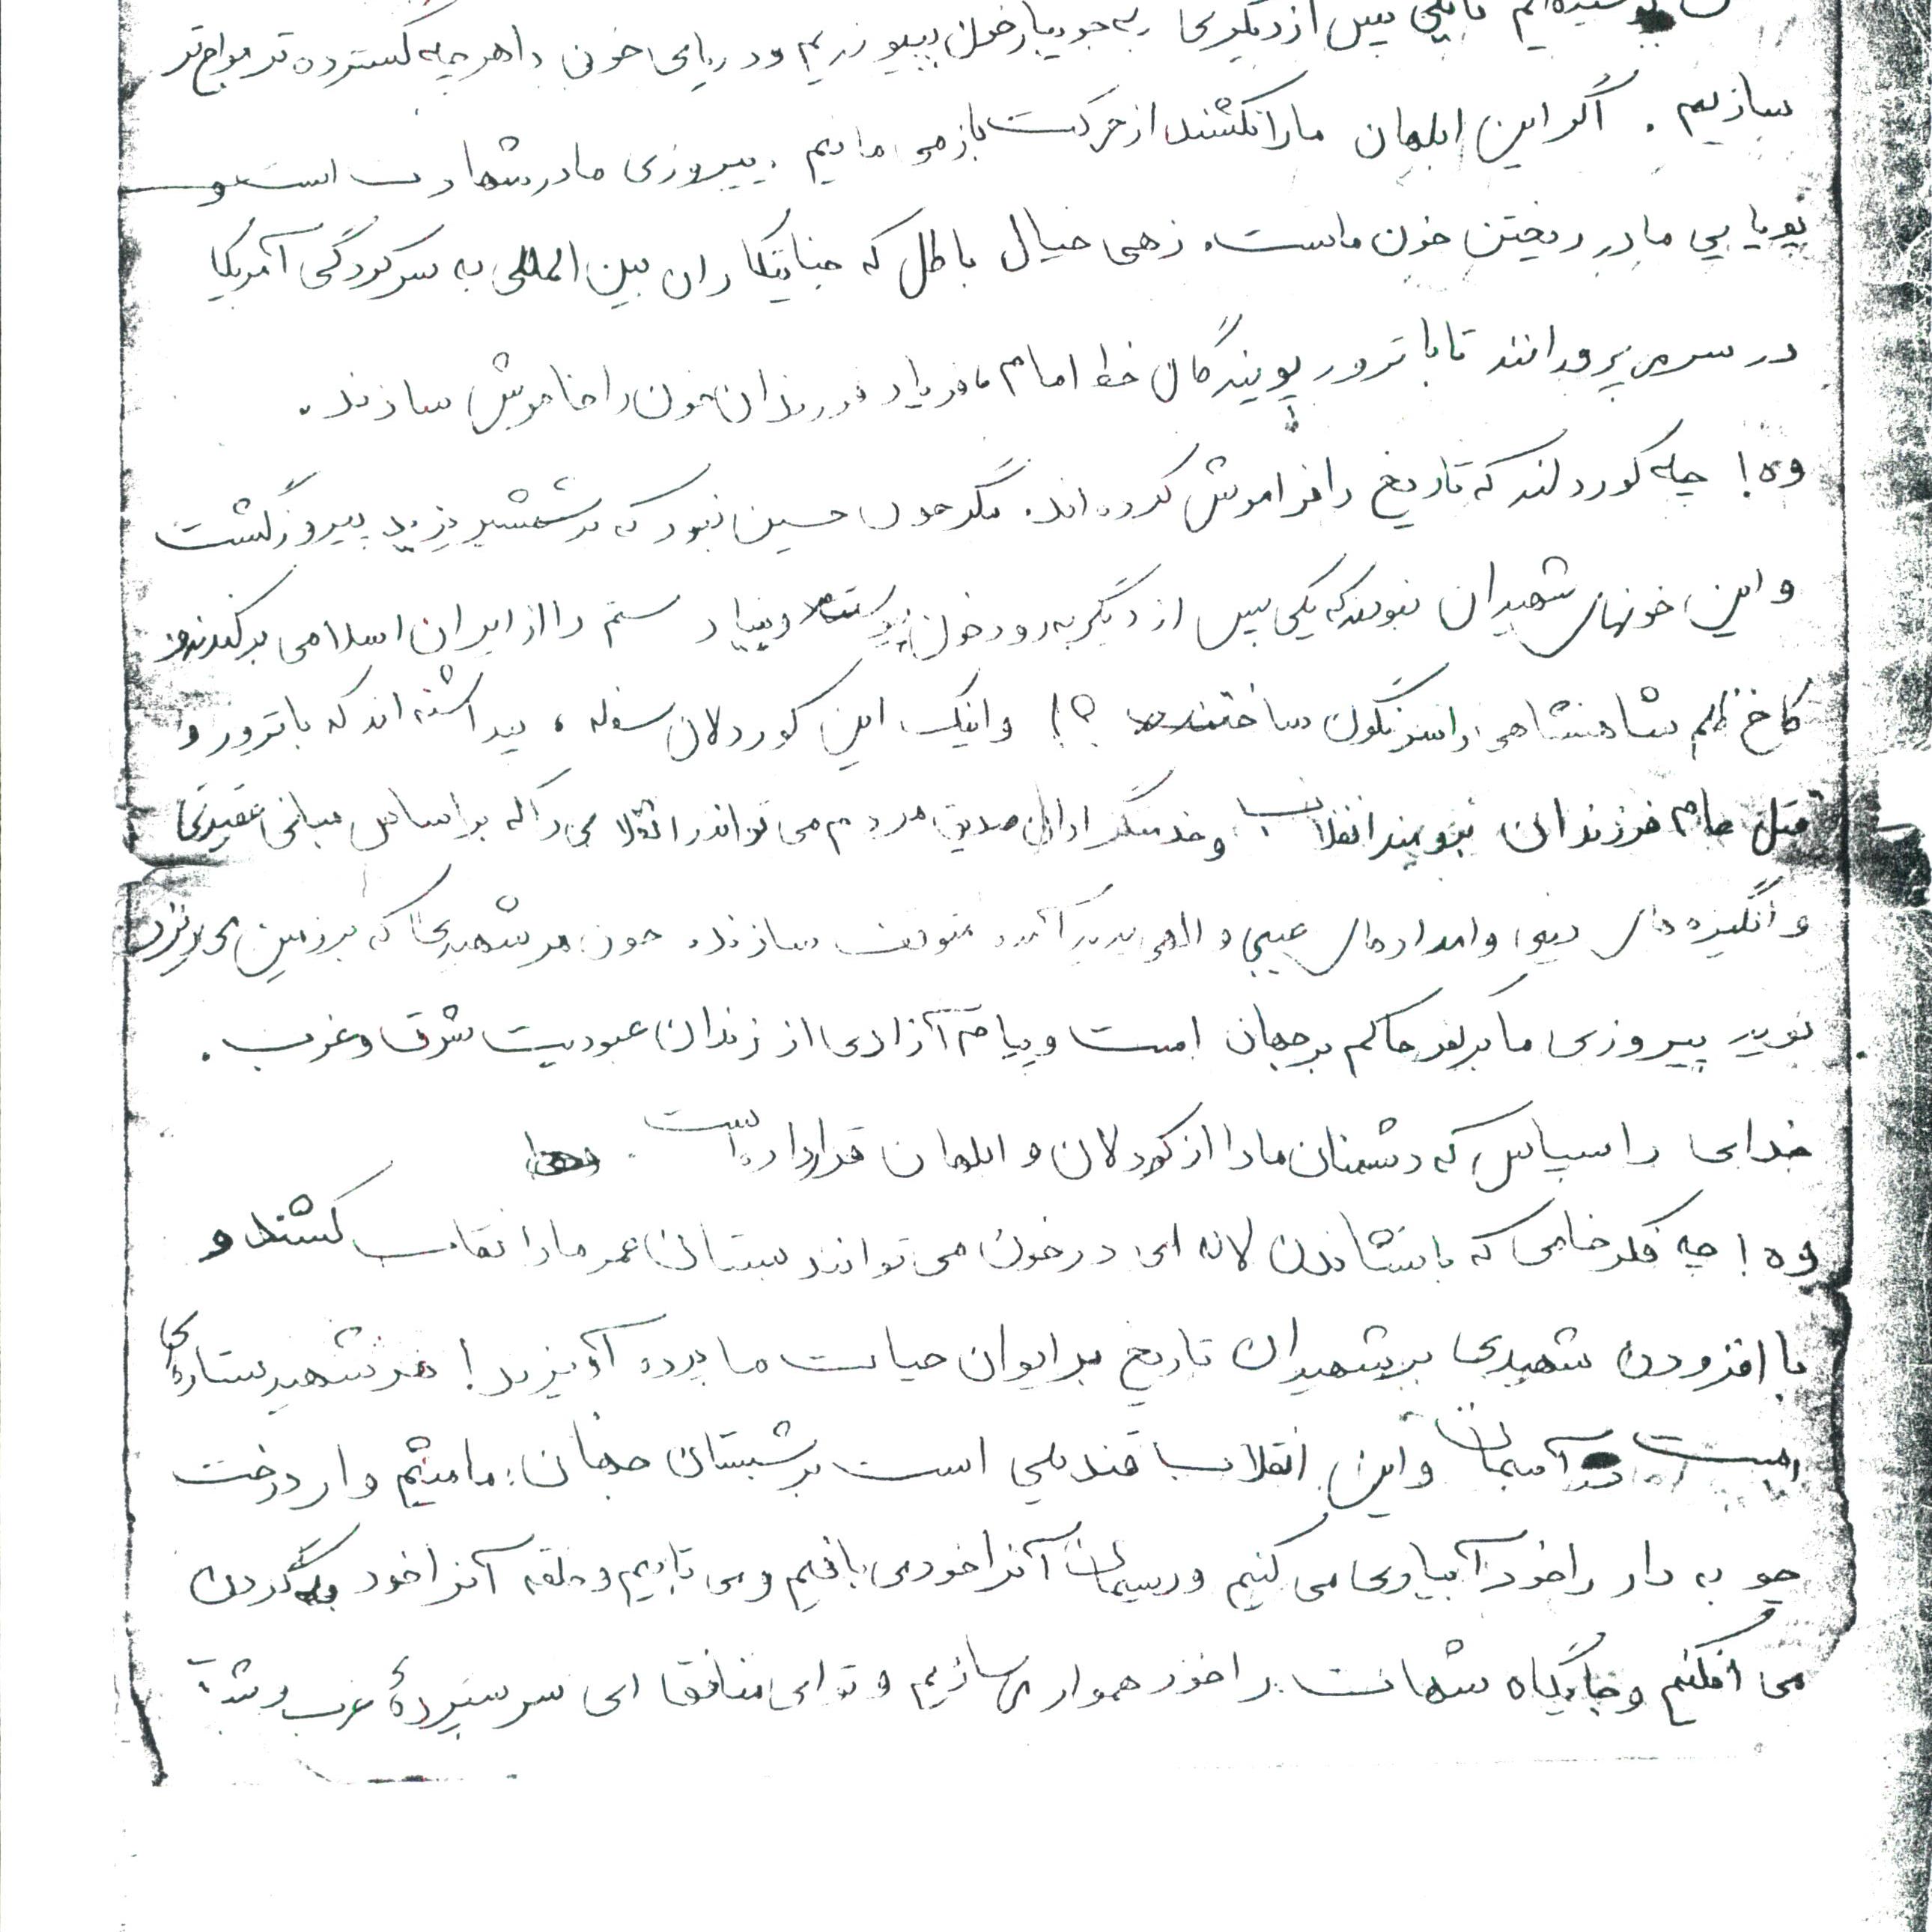 یکی پس از دیگری به جویبار خون بپیوندیم و دریای خون را هر چه گسترده تر مواج تر
سازیم . اگر این ابلهان ما را نکشند از حرکت باز می مانیم . پیروزی ما در شهادت است و
پویایی ما در ریختن خون ماست . زهی خیال باطل که جنایتکاران بین المللی به سرکردگی آمریکا
در سر می پرورانند تا با ترور پویندگان خط امام ، فریاد فرزندان خون را خاموش سازند .
وه ! چه کوردلند که تاریخ را فراموش کرده اند . مگر خون حسین نبود که بر شمشیر یزید پیروز گشت
و این خونهای شهیدان نبودند که یکی پس از دیگر به رود خون پیوستند و بنیاد ستم را از ایران اسلامی برکندند و
کاخ ظلم شاهنشاهی را سرنگون ساختند ؟! و اینک این کوردلان سفله ، پنداشته اند که با ترور و
قتل عام فرزندان نیرومند انقلاب و خدمتگزاران صدیق مردم می توانند انقلابی را که بر اساس مبانی عقیدتی
و انگیزه های دینی و امدادهای غیبی و الهی پدید آمده متوقف سازند . خون هر شهیدی که بر زمین می ریزد
نوید پیروزی ما بر کفر حاکم بر جهان است و پیام آزادی از زندان عبودیت شرق و غرب .
خدای را سپاس که دشمنان ما را از کوردلان و ابلهان قرار داده است .
وه ! چه فکر خامی که با نشاندن لاله ای در خون می توانند بستان عمر ما را نقاب کشند و
با افزودن شهیدی بر شهیدان تاریخ بر ایوان حیات ما پرده آویزند ! هر شهید ستاره ای
است در آسمان و این انقلاب قندیلی است بر شبستان جهان : ما میثم وار درخت
چوبه دار را خود آبیاری می کنیم و ریسمان آنرا خود می بافیم و می تابیم و حلقه آنرا خود به گردن
می افکنیم و جایگاه شهادت را خود هموار می سازیم و تو ای منافق ای سر سپردهٔ غرب و شرق